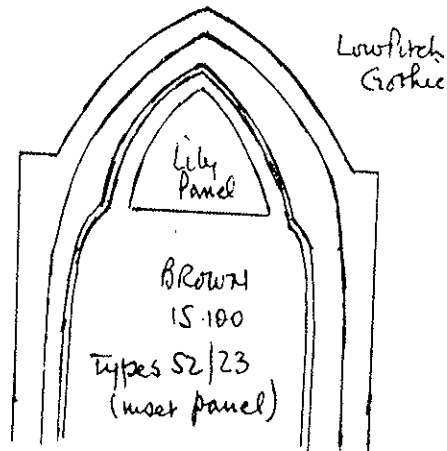 Low Pitch
Gothic
Lily
Panel
BROWN
15.100
Types 52/23
(inset panel)